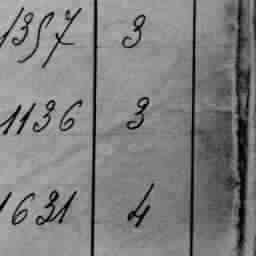 1357 3
1136 3
1631 4